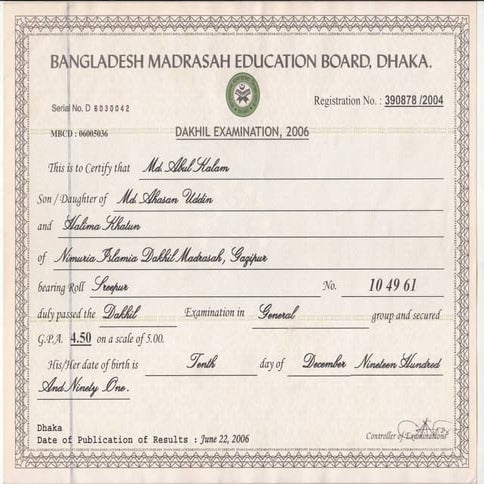 BANGLADESH MADRASAH EDUCATION BOARD, DHAKA.
Serial No. D 6030042
Registration No. : 390878 /2004
MBCD : 06005036
DAKHIL EXAMINATION, 2006
This is to Certify that Md. Abul Kalam
Son / Daughter of Md. Ahasan Uddin
and Halima Khatun
of Nimuria Islamia Dakhil Madrasah, Gazipur
bearing Roll Sreepur No. 10 49 61
duly passed the Dakhil Examination in General group and secured
G.P.A. 4.50 on a scale of 5.00.
His/Her date of birth is Tenth day of December Nineteen Hundred
And Ninety One.
Dhaka
Date of Publication of Results : June 22, 2006
Controller of Examinations